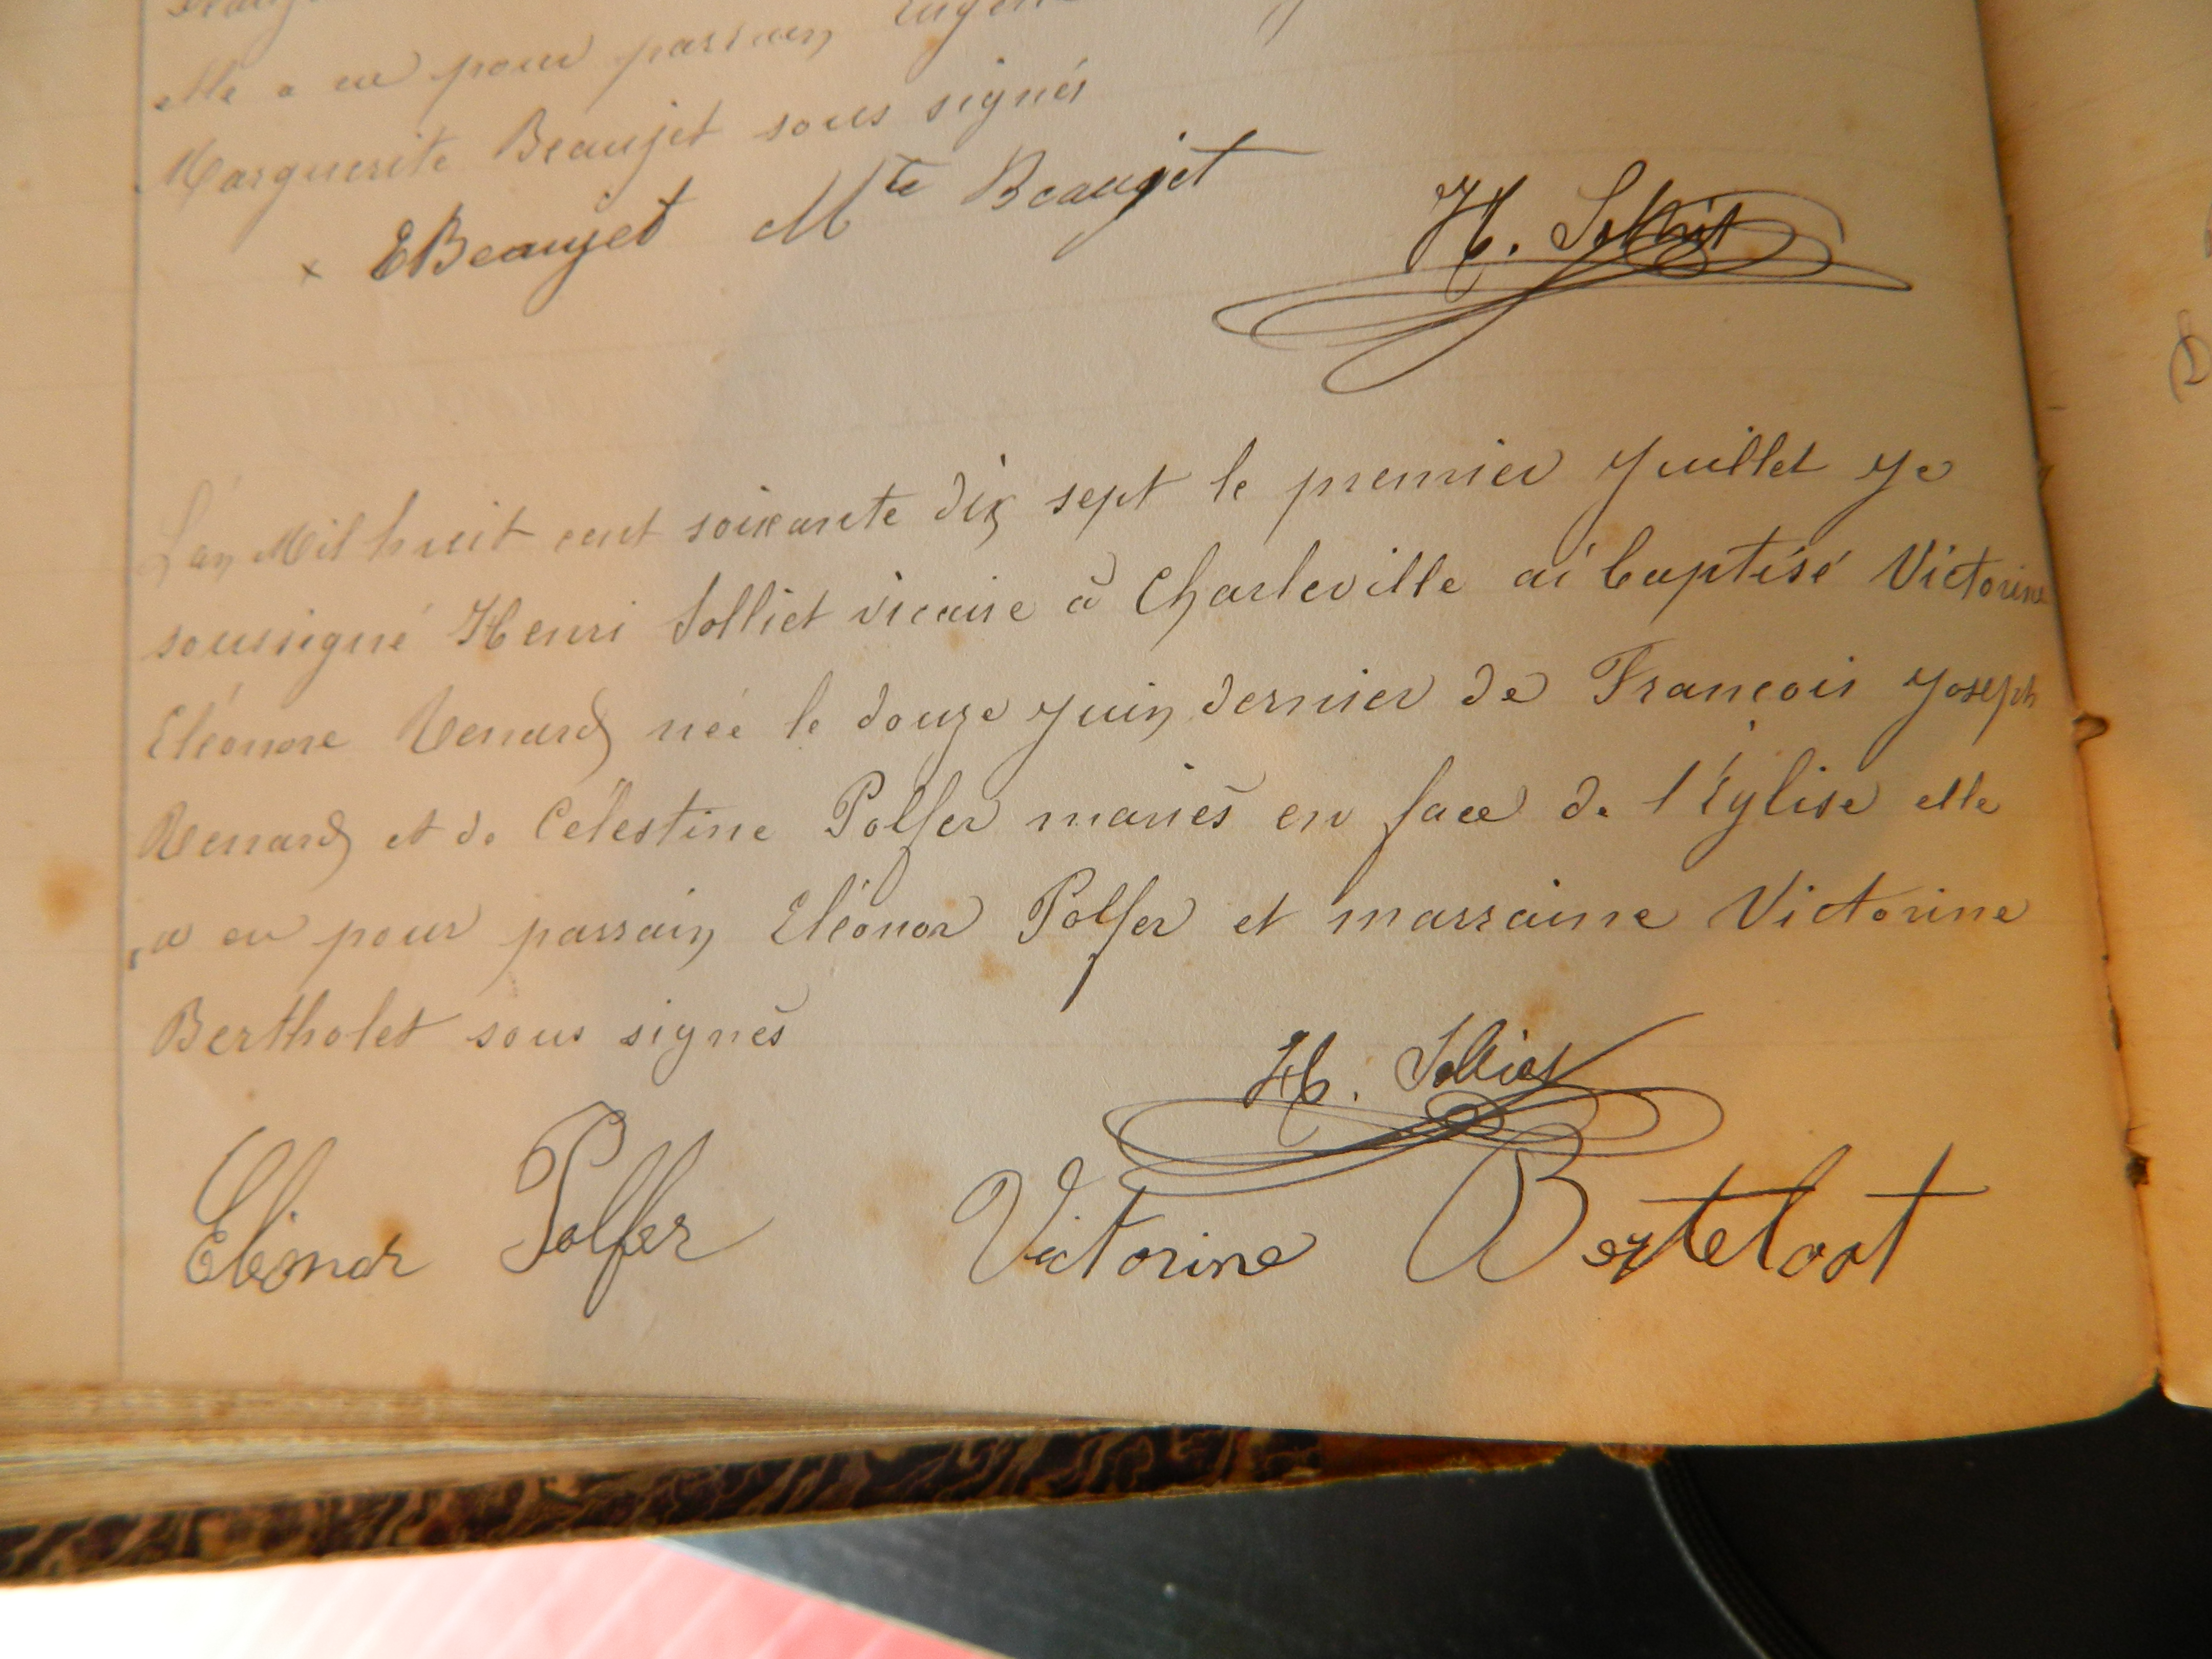 elle a eu pour parrain Eugène
Marguerite Beaujet sous signés
x EBeaujet Mte Beaujet
H. Solliet
L'an Mil huit cent soixante dix sept le premier Juillet Je
soussigné Henri Solliet vicaire à Charleville ai baptisé Victorine
Eléonore Renard née le douze Juin dernier de Francois Joseph
Renard et de Célestine Polfer mariés en face de l'Église elle
a eu pour parrain Eléonor Polfer et marraine Victorine
Bertholet sous signés
H. Solliet
Eléonor Polfer Victorine Bertelost